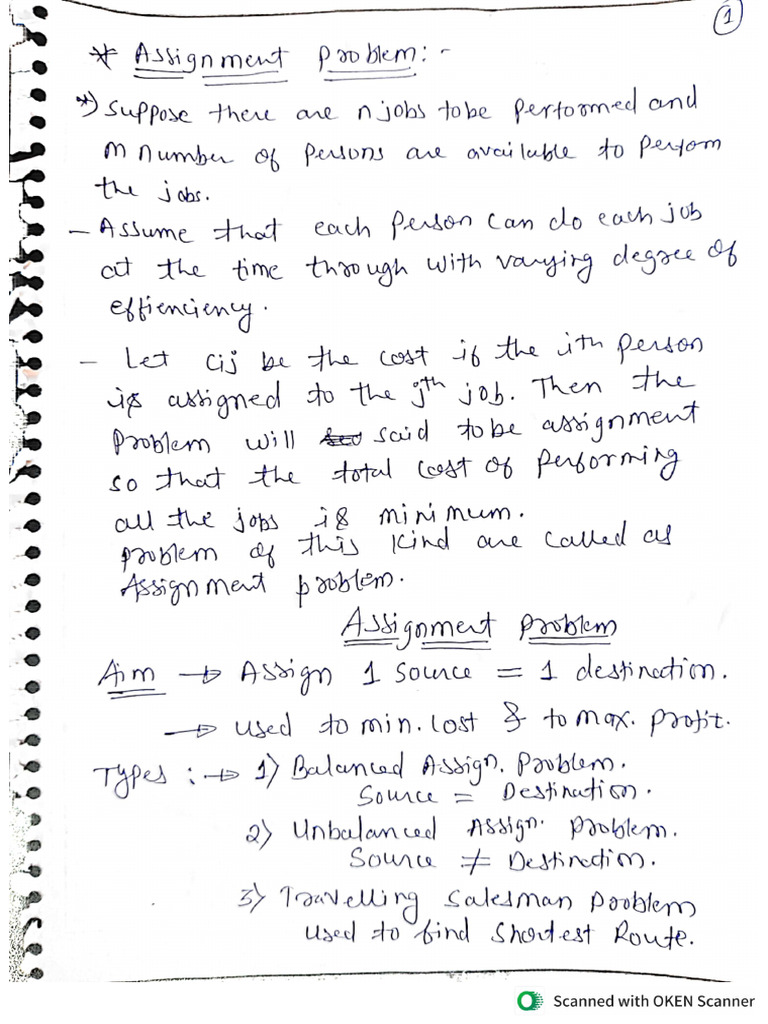 1
* Assignment Problem:-
*) Suppose there are n jobs to be performed and
m number of persons are available to perfom
the jobs.
- Assume that each person can do each job
at the time through with varying degree of
effienciency.
- Let cij be the cost if the ith person
is assigned to the jth job. Then the
problem will said to be assignment
so that the total cost of performing
all the jobs is minimum.
problem of this kind are called as
Assignment problem.
Assignment Problem
Aim → Assign 1 source = 1 destination.
→ used to min. cost & to max. profit.
Types :→ 1) Balanced Assign. Problem.
Source = Destination.
2) Unbalanced Assign. problem.
Source ≠ Destination.
3) Travelling Salesman Problem
used to find Shortest Route.
Scanned with OKEN Scanner